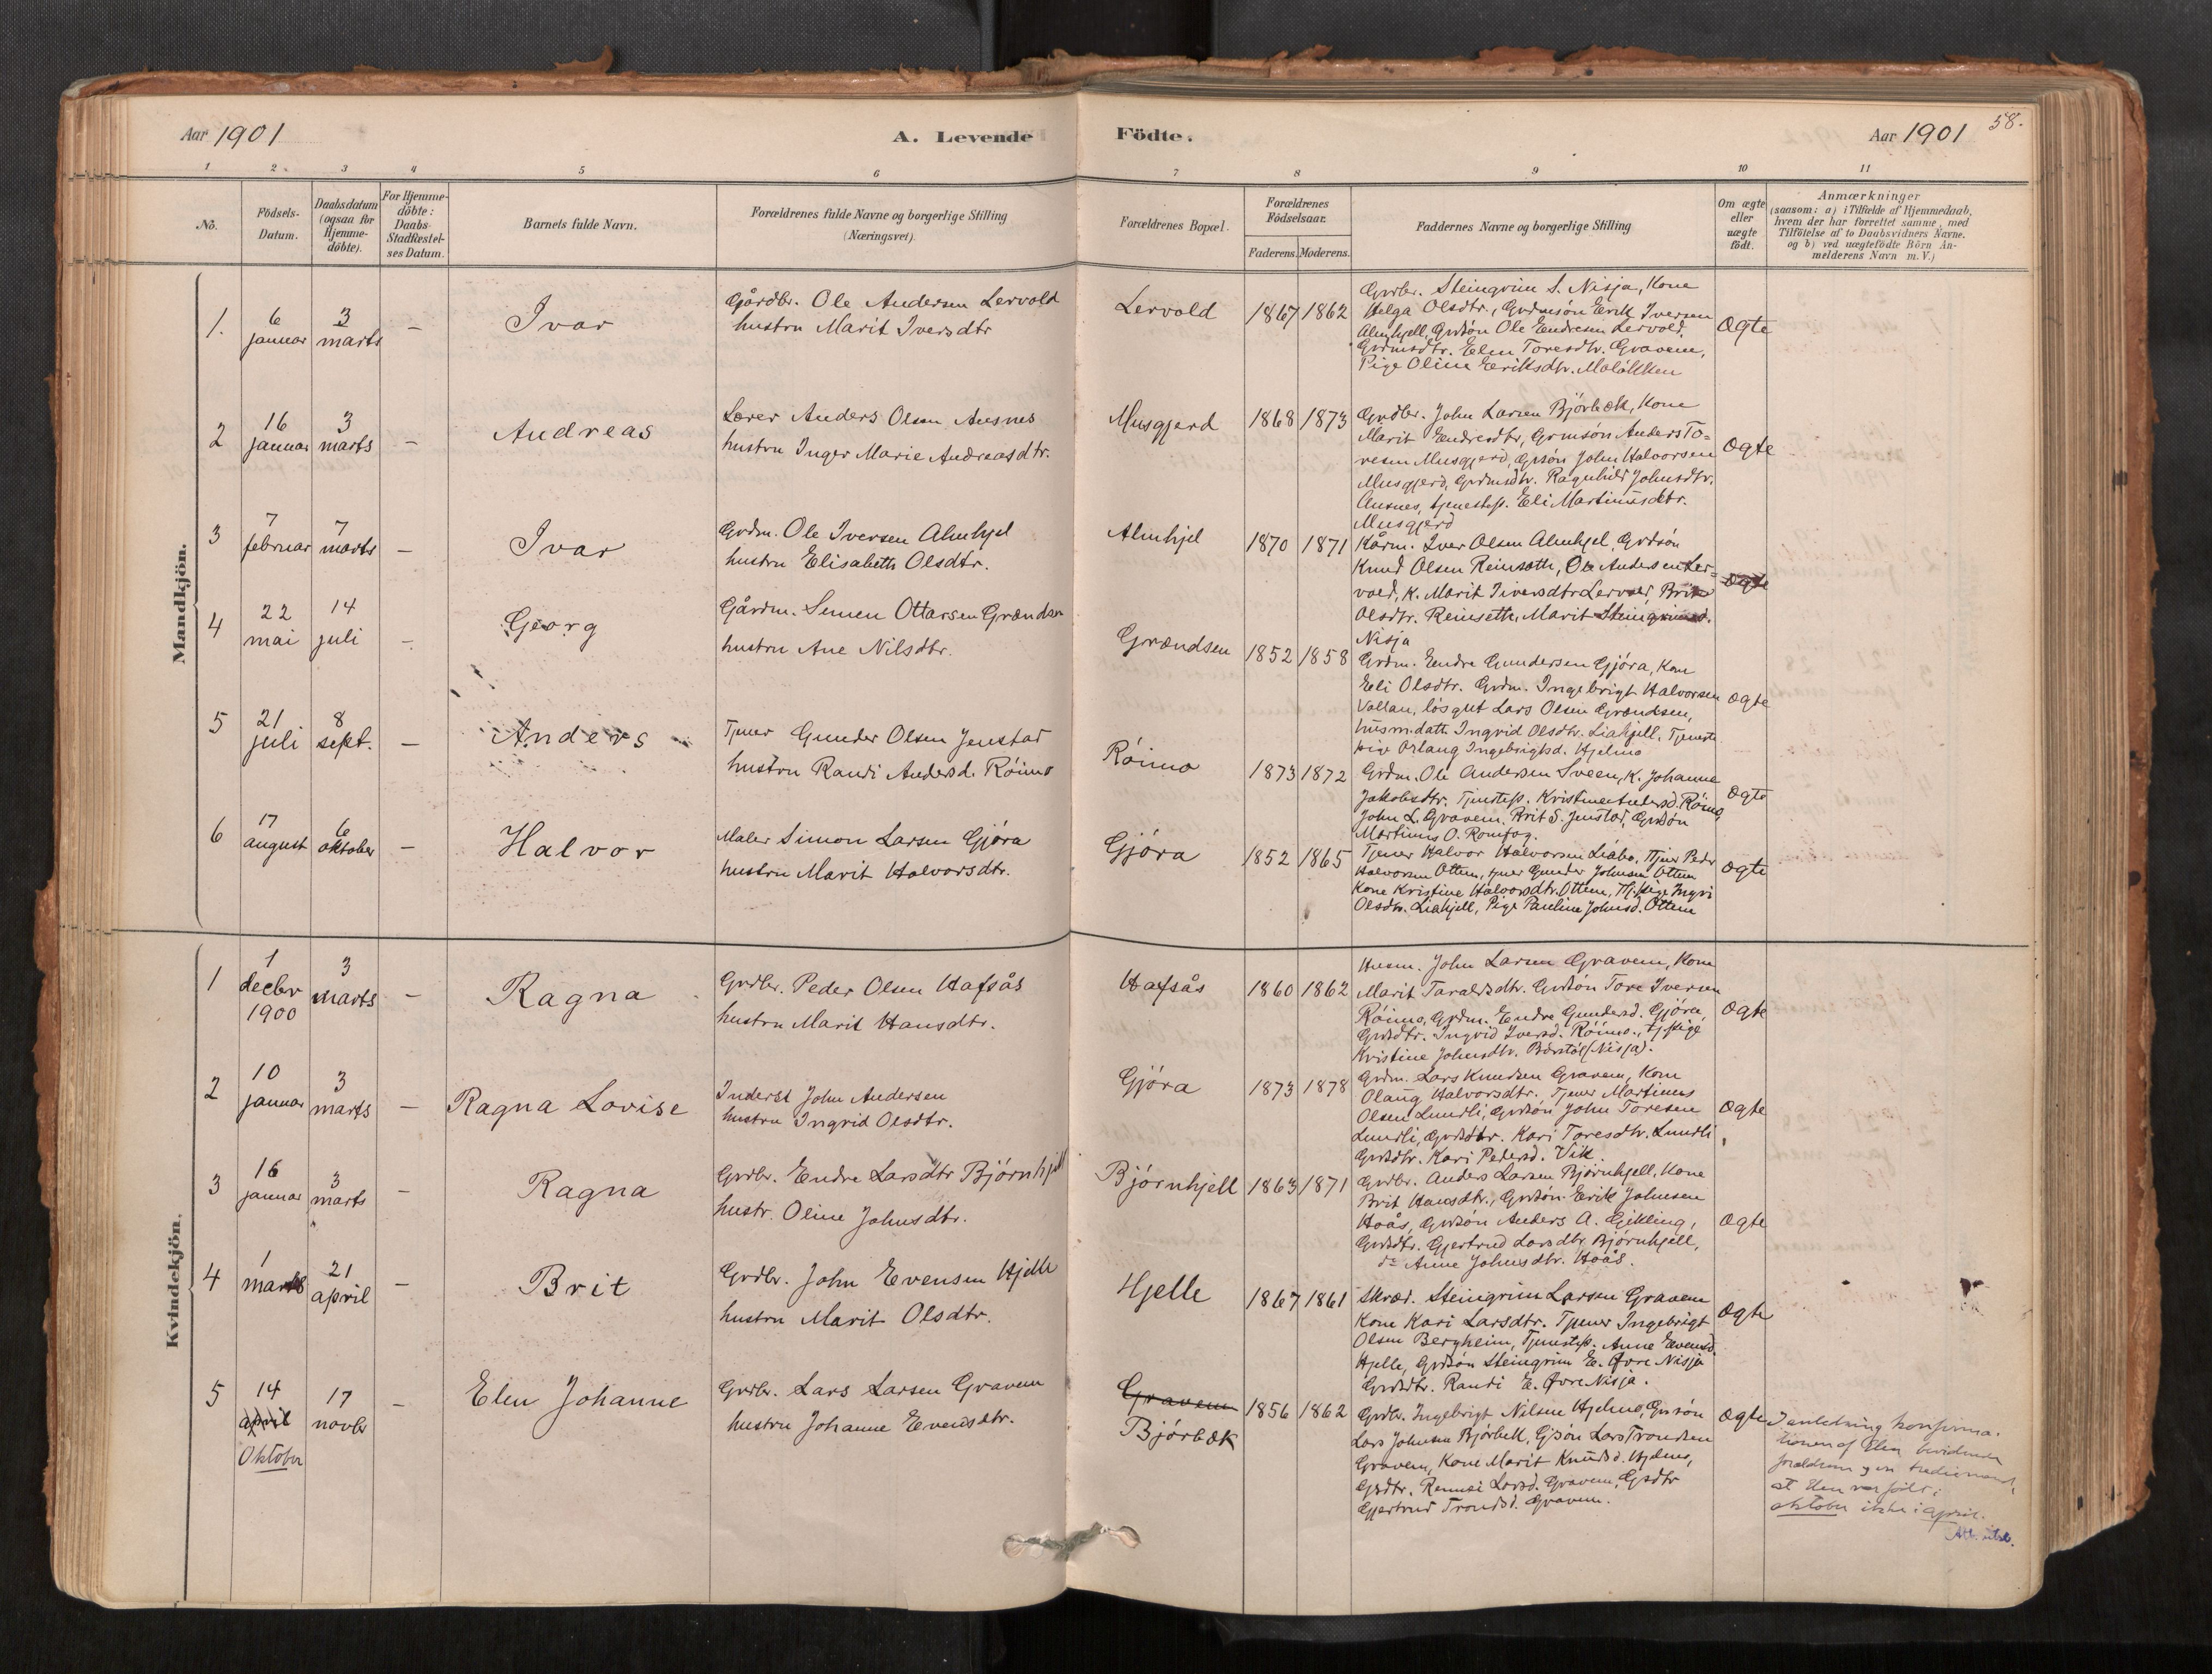 Aar 1901
A. Levende
Födte.
Aar 1901
58.
1 2 3 4 5 6 7 8 9 10 11
No.
Födsels-
Datum.
Daabsdatum
(ogsaa for
Hjemme-
döbte).
For Hjemme-
döbte:
Daabs-
Stadfæstel-
ses Datum.
Barnets fulde Navn.
Forældrenes fulde Navne og borgerlige Stilling
(Næringsvei).
Forældrenes Bopæl.
Forældrenes
Födselsaar.
Faderens. Moderens.
Faddernes Navne og borgerlige Stilling
Om ægte
eller
uægte
födt.
Anmærkninger
(saasom: a) i Tilfælde af Hjemmedaab,
hvem der har forrettet samme, med
Tilföielse af to Daabsvidners Navne.
og b) ved uægtefödte Börn An-
melderens Navn m. V.)
Mandkjön.
1.
6
januar
3
marts
-
Ivar
Gårdbr. Ole Andersen Lervold
hustru Marit Iversdtr
Lervold
1867 1862
Grdbr. Steingrim S. Nisja, Kone
Helga Olsdtr., Grdmsön Erik Iversen
Almhjell, Grdsön Ole Endresen Lervold,
Grdmsdtr. Elen Toresdtr. Gravem,
Pige Oline Eeriksdtr.
Ægte
2
16
januar
3
marts
-
Andreas
Lærer Anders Olsen Ausnes
hustru Inger Marie Andreasdtr.
Musgjerd
1868 1873
Grdbr. John Larsen Bjørbæk, Kone
Marit Eendresdtr, Grmsön Anders To=
resen Musgjerd, Grsön John Halvorsen
Musgjerd, Grdmsdtr. Ragnhild Johnsdtr.
Ausnes, tjenestep. Eli Martinusdtr.
Musgjerd
Ægte
3
7
februar
7
marts
-
Ivar
Grdm. Ole Iversen Almhjel
hustru Elisabeth Olsdtr.
Almhjel
1870 1871
Kårm. Iver Olsen Almhjel, Grdsön
Knud Olsen Reinseth, Ole Andersen Ler=
vold, K. Marit Iversdtr Lervold, Brit
Olsdtr. Reinseth, Marit Steingrimsd.
Nisja
ægte
4
22
mai
14
juli
-
Georg
Gårdm. Semen Ottarsen Grændsen
hustru Ane Nilsdtr.
Grændsen
1852 1858
Grdm. Eendre Gundersen Gjöra, Kone
Eeli Olsdtr. Grdm. Ingebrigt Halvorsen
Vollan, lösgut Lars Olsen Grændsen,
husm.datt. Ingrid Olsdtr. Liahjell, Tjeneste
pige Ingebrigtsd. Hjelmo
ægte
5
21
juli
8
sept.
-
Anders
Tjener Gunder Olsen Jenstad
hustru Randi Andersd. Röimo
Röimo
1873 1872
Grdm. Ole Andersen Sveen, K. Johanne
Jakobsdtr. Tjenstep. Kristine Andersd. Röimo
John L. Gravem, Brit S. Jenstad, Grdsön
Martinus O. Romfog.
ægte
6
17
august
6
oktober
-
Halvor
Maler Simon Larsen Gjöra
hustru Marit Halvorsdtr.
Gjöra
1852 1865
Tjener Halvor Halvorsen Liabø, Tjener Peder
Halvorsen Ottem, tjener Gunder Johnsen Ottem
Kone Kristine Halvorsdtr. Ottem, Tj. Pige Ingri
Olsdtr. Liahjell, Pige Pauline Johnsd. Ottem
ægte
Kvindekjön.
1
1
decbr
1900
3
marts
-
Ragna
Grdbr. Peder Olsen Hafsås
hustru Marit Hansdtr.
Hafsås
1860 1862
Husm. John Larsen Gravem, Kone
Marit Taraldsdtr. Grdsön Tore Iversen
Röimo, Grdm. Endre Gundersd. Gjöra,
Grdsdtr. Ingrid Iversd. Röimo., tj. Pige
Kristine Johnsdtr. (Nisja).
Ægte
2
10
januar
3
marts
-
Ragna Lovise
Inderst John Andersen
hustru Ingrid Olsdtr.
Gjöra
1873 1878
Grdm. Lars Knudsen Gravem, Kone
Olaug Halvorsdtr. Tjener Martinus
Olsen Lundli, Grdsön John Toresen
Lundli, Grdsdtr. Kari Toresdtr. Lundli,
Grdsdtr. Kari Pedersd. Vik.
Ægte
3
16
januar
3
marts
"
-
Ragna
Grdbr. Endre Larsdtr Bjørnhjell
hustr. Oline Johnsdtr.
Bjørnhjell
1863 1871
Grdbr. Anders Larsen Bjørnhjell, Kone
Brit Hansdtr., Grdsön Erik Johnsen
Hoås, Grdsön Anders A. Gikling,
Grdsdtr. Gjertrud Larsdtr. Bjørnhjell,
do Anne Johnsdtr. Hoås.
Ægte
4
1
marts
21
april
-
Brit
Grdbr. John Evensen Hjelle
hustru Marit Olsdtr.
Hjelle
1867 1861
Skræd. Steingrim Larsen Gravem
Kone Kari Larsdtr. Tjener Ingebrigt
Olsen Bergheim, Tjenstep. Anne Eevensd.
Hjelle, Grdsön Steingrim E. Øvre Nisja
Grdsdtr. Randi E. Øvre Nisja.
Ægte
5
14
april
Oktober
17
novbr
-
Elen Johanne
Grdbr. Lars Larsen Gravem
hustru Johanne Evensdtr.
Gravem
Bjørbæk
1856 1862
Grdbr. Ingebrigt Nilsen Hjelmo, Grdsön
Lars Johnsen Bjørbæk, Gsön Lars Trondsen
Gravem, Kone Marit Knudsd. Hjelmo,
Grdtr. Larsd. Gravem, Gsdtr
Gjertrud Trondsd. Gravem.
Ægte
I anledning konfirma-
tionen af Elen bevidnede
forældrene og en tredjemand,
at Elen var född i
oktober ikke i april.